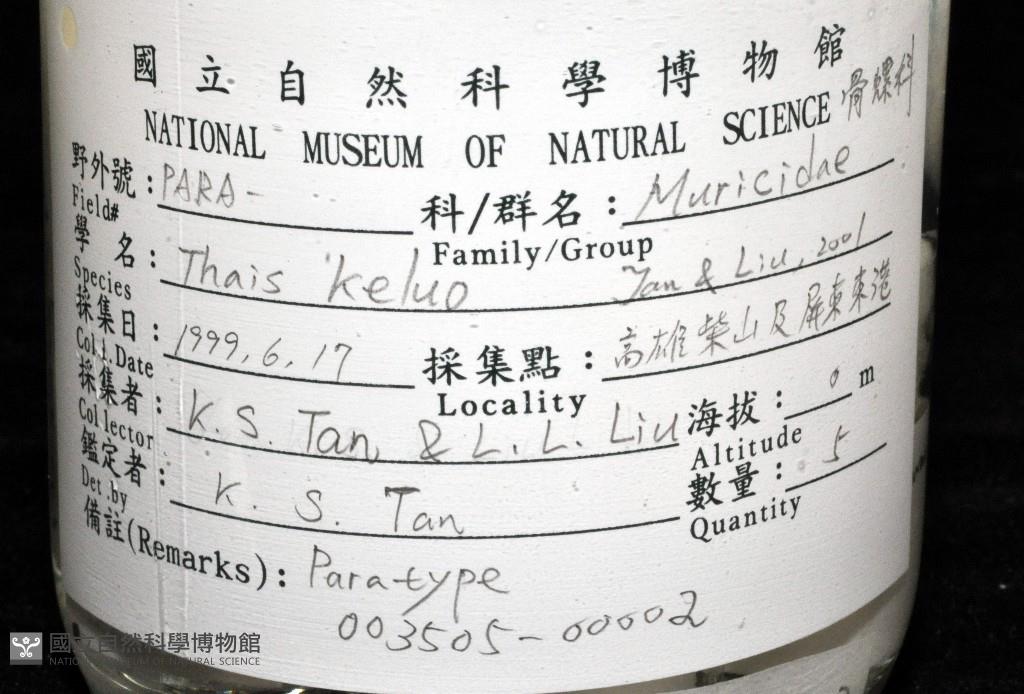 國立自然科學博物館
NATIONAL MUSEUM OF NATURAL SCIENCE 骨螺科
野外號:PARA- 科/群名:Muricidae
Field# Family/Group
學名:Thais keluo Tan & Liu, 2001
Species
採集日:1999, 6, 17 採集點:高雄柴山及屏東東港
Col1.Date Locality
採集者:K. S. Tan, & L. L. Liu 海拔:0 m
Collector Altitude
鑑定者:K. S. Tan 數量:5
Det.by Quantity
備註(Remarks):Paratype
003505-00002
國立自然科學博物館
NATIONAL MUSEUM OF NATURAL SCIENCE